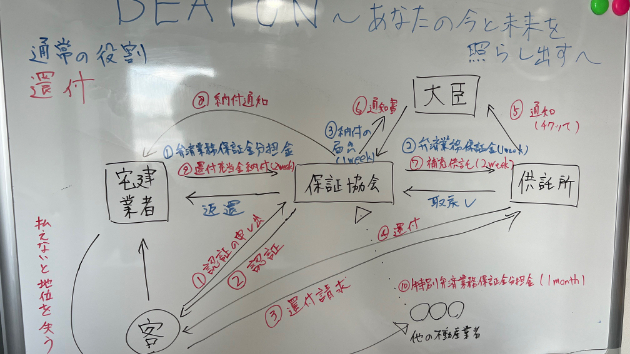 BEATON～あなたの今と未来を
照らし出すへ
通常の役割
還付
⑧納付通知
⑥通知書
大臣
⑤通知
①弁済業務保証金分担金
③納付の
届出
(1week)
②弁済業務保証金(1week)
⑨還付充当金納付(2week)
⑦補充供託(2week)
宅建
業者
保証協会
供託所
返還
取戻し
払えないと地位を失う
①認証の申し出
②認証
④還付
③還付請求
⑩特別弁済業務保証金分担金(1month)
客
他の不動産業者